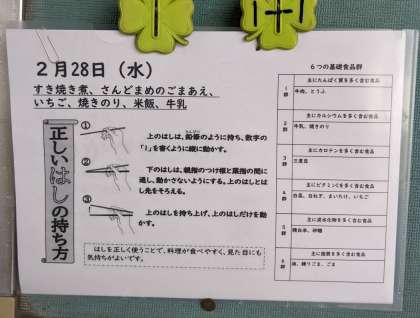 2月28日（水）
すき焼き煮、さんどまめのごまあえ、
いちご、焼きのり、米飯、牛乳
正しいはしの持ち方
①
上のはしは、鉛筆のように持ち、数字の
「1」を書くように縦に動かす。
②
下のはしは、親指のつけ根と薬指の間に
通し、動かさないようにする。上のはしとは
し先をそろえる。
③
上のはしを持ち上げ、上のはしだけを動
かす。
はしを正しく使うことで、料理が食べやすく、見た目にも
気持ちがよいです。
6つの基礎食品群
1群
主にたんぱく質を多く含む食品
牛肉、とうふ
2群
主にカルシウムを多く含む食品
牛乳、焼きのり
3群
主にカロテンを多く含む食品
三度豆
4群
主にビタミンCを多く含む食品
白菜、白ねぎ、まいたけ、いちご
5群
主に炭水化物を多く含む食品
精白米、砂糖
6群
主に脂質を多く含む食品
油、練りごま、ごま